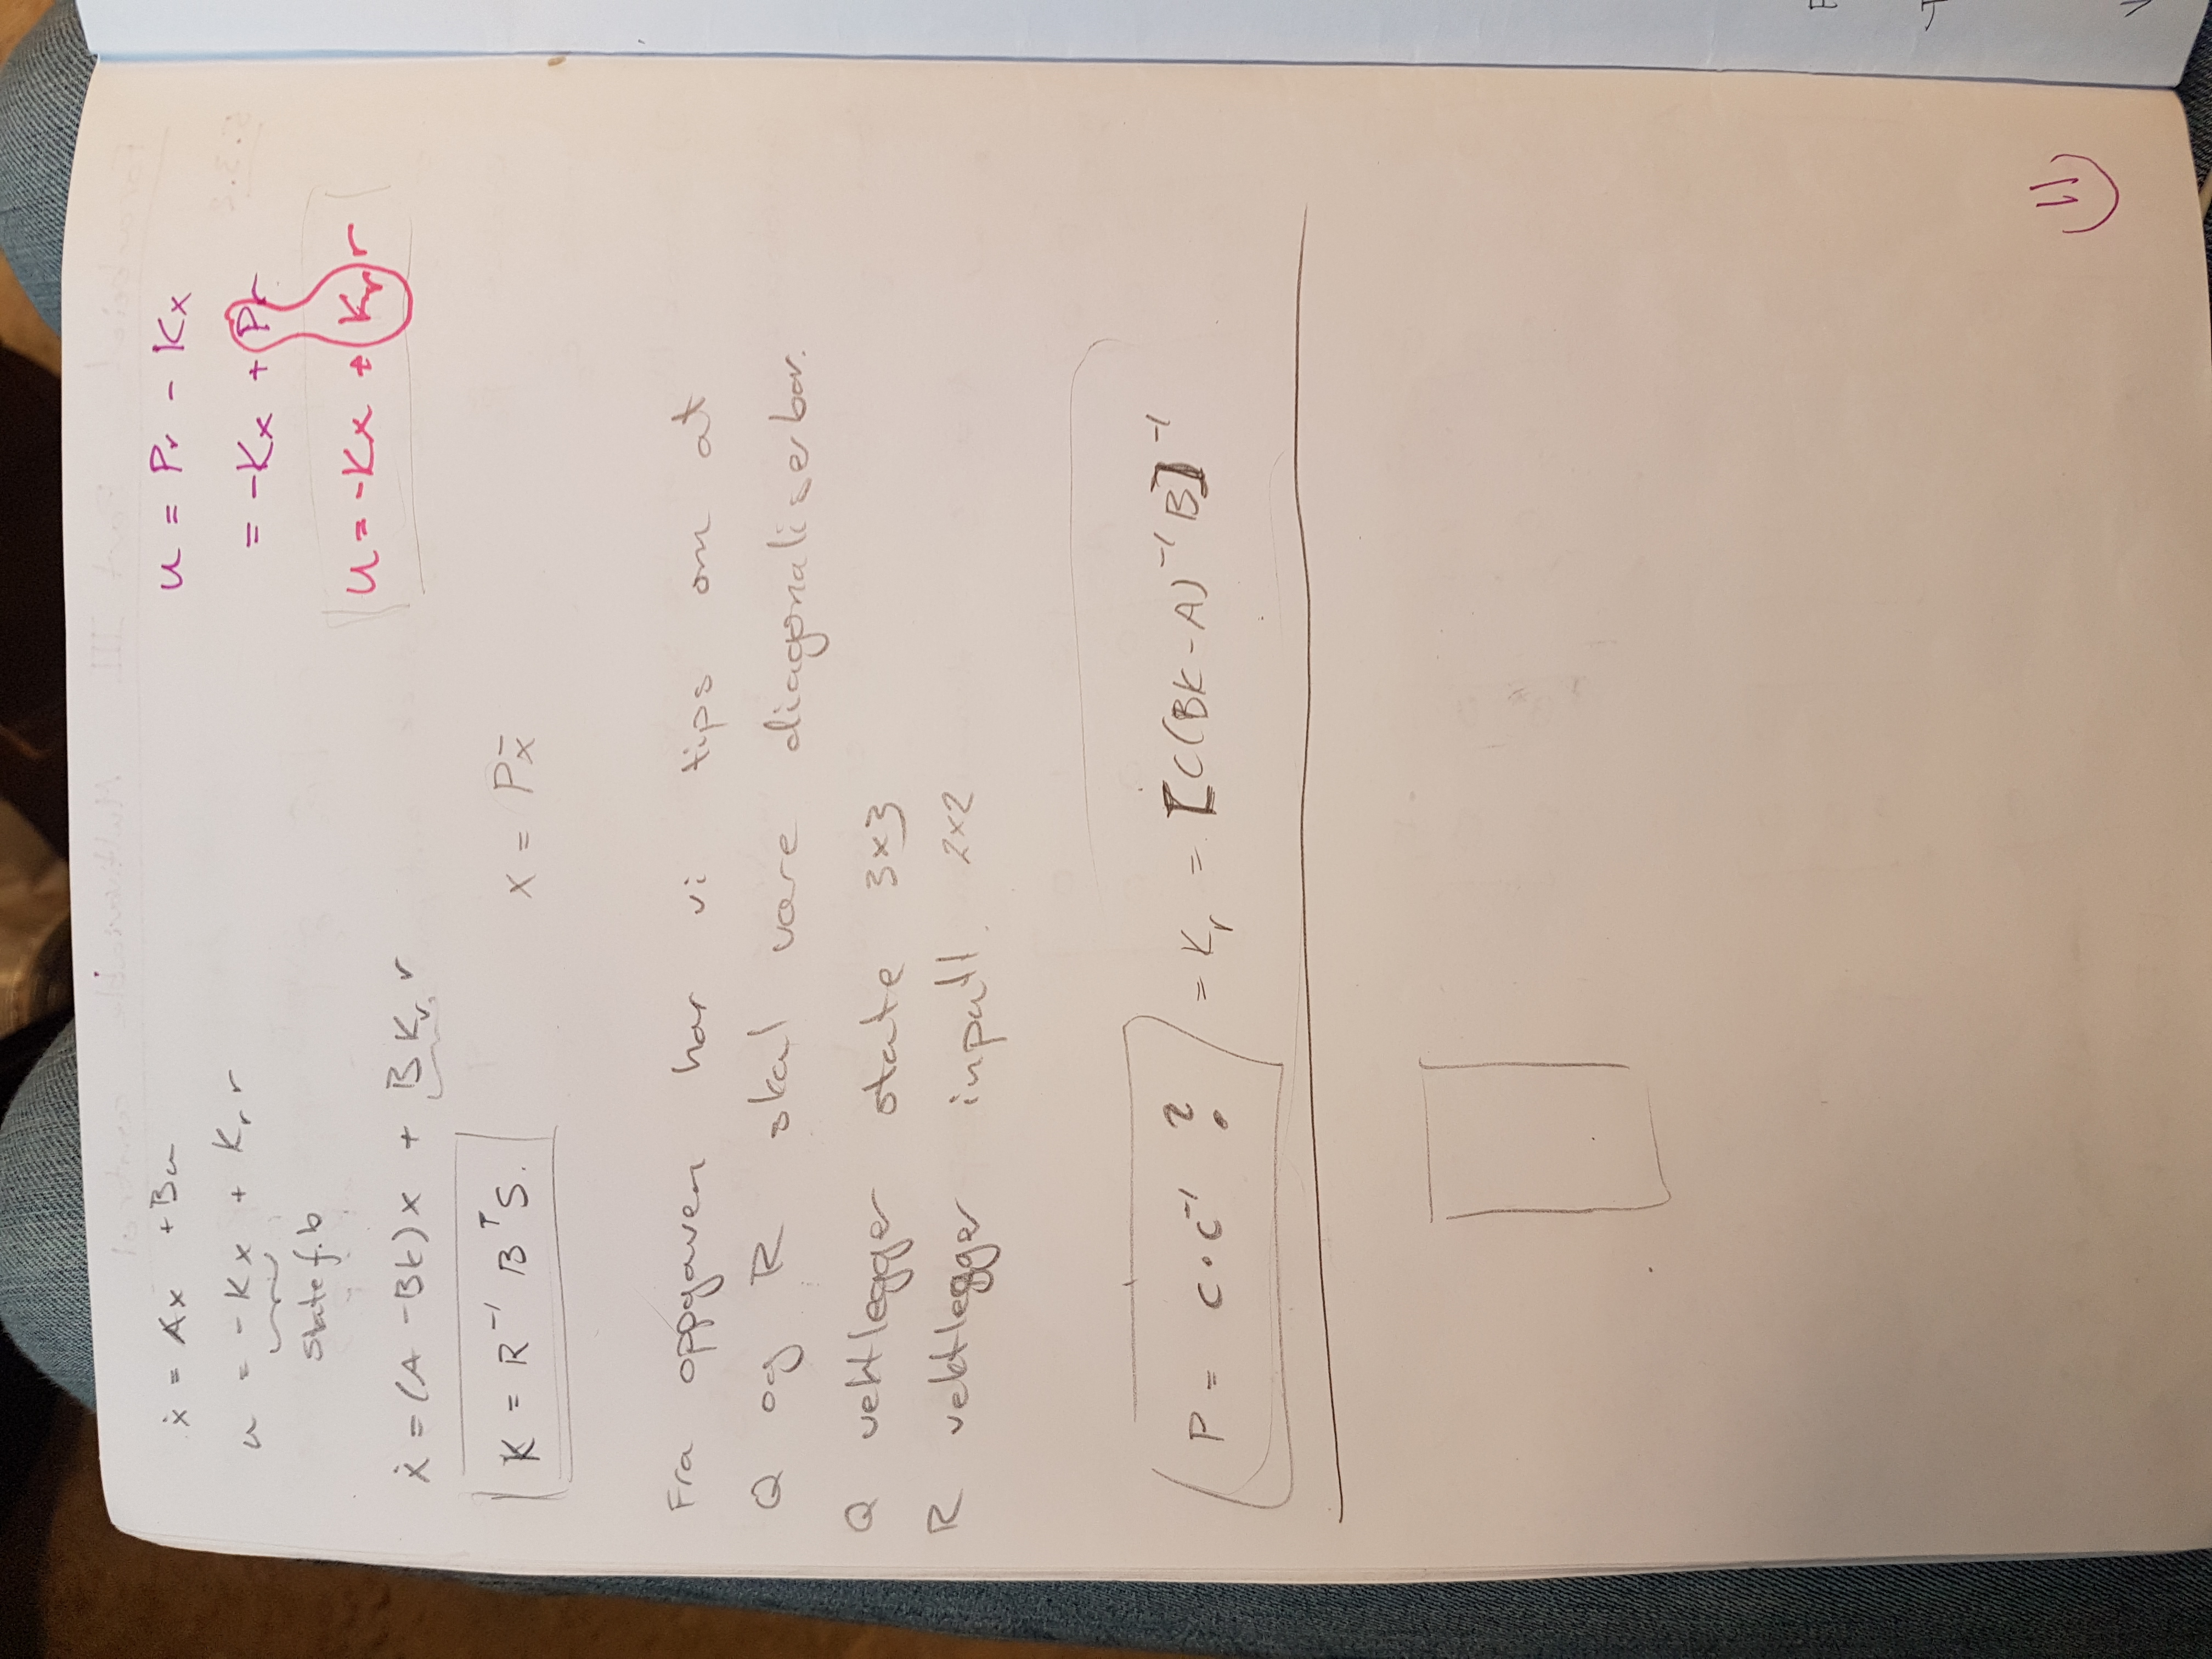 ẋ = Ax + Bu
u = -Kx + Kᵣ r
State f.b
ẋ = (A - BK)x + B Kᵣ r
K = R⁻¹ BᵀS.
u = Pr - Kx
= -Kx + Pr
u = -Kx + Kᵣ r
x = Px̄
Fra oppgaven har vi tips om at
Q og R skal være diagonaliserbar.
Q vektlegger state 3x3
R vektlegger inputt. 2x2
P = C·C⁻¹ ? = Kᵣ = [C(BK-A)⁻¹B]⁻¹